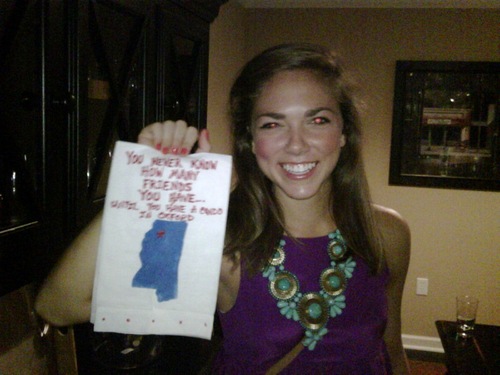 YOU NEVER KNOW
HOW MANY
FRIENDS
YOU HAVE...
UNTIL YOU HAVE A CONDO
IN OXFORD